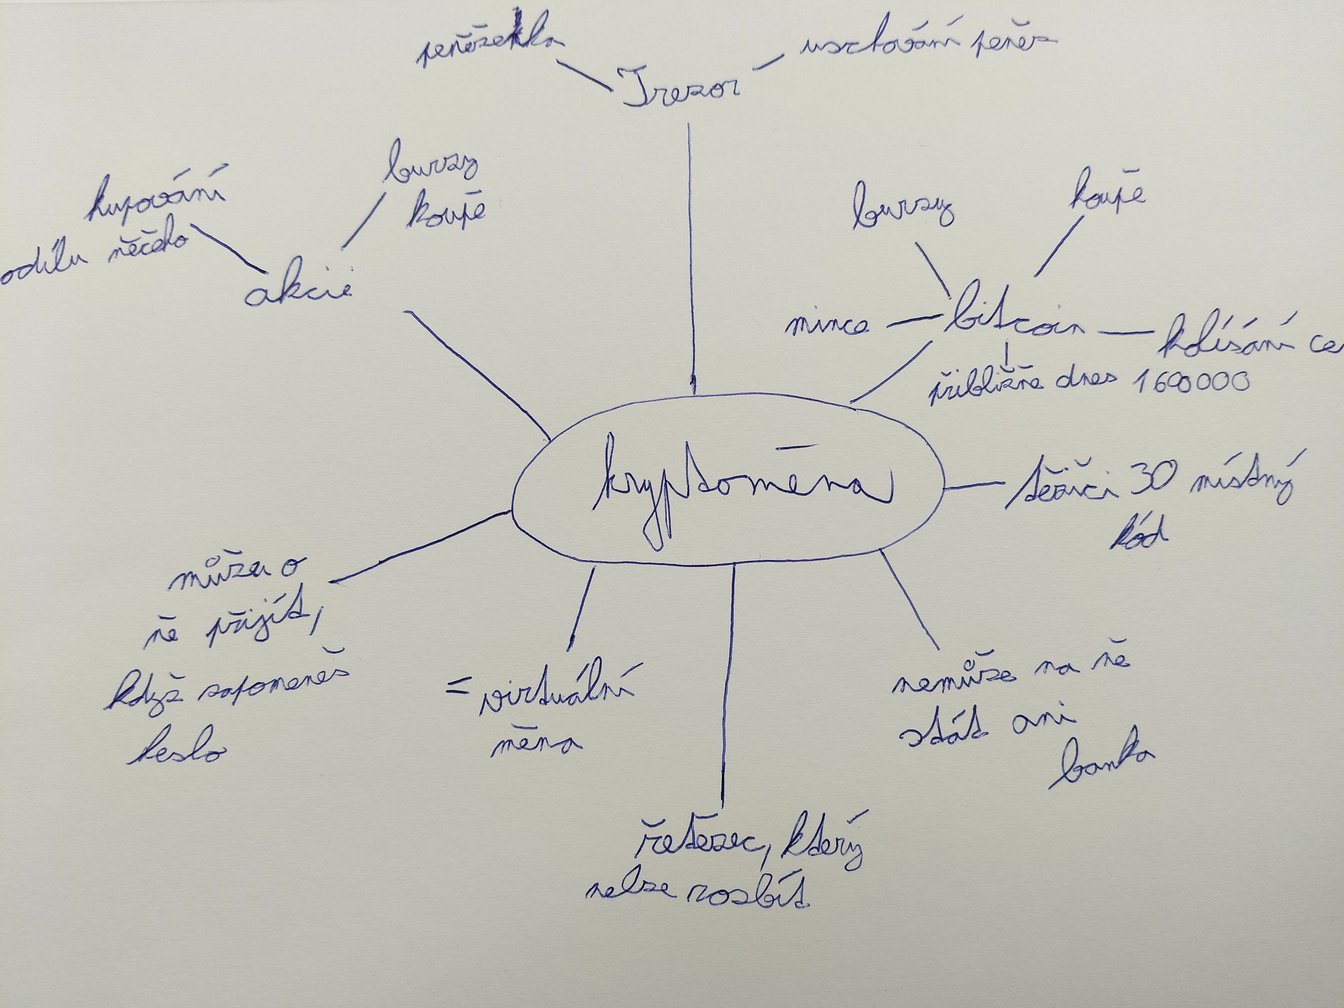 peněženka
uschování peněz
Trezor
burzy
koupě
kupování
odílu něčeho
akcie
burzy
koupě
mince
bitcoin
kolísání ce
přibližně dnes 1600000
kryptoměna
těžiči 30 místný
kód
můžeu o
ně přijít,
když zapomeneš
heslo
= virtuální
měna
nemůže na ně
stát ani
banka
řetězec, který
nelze rozbít